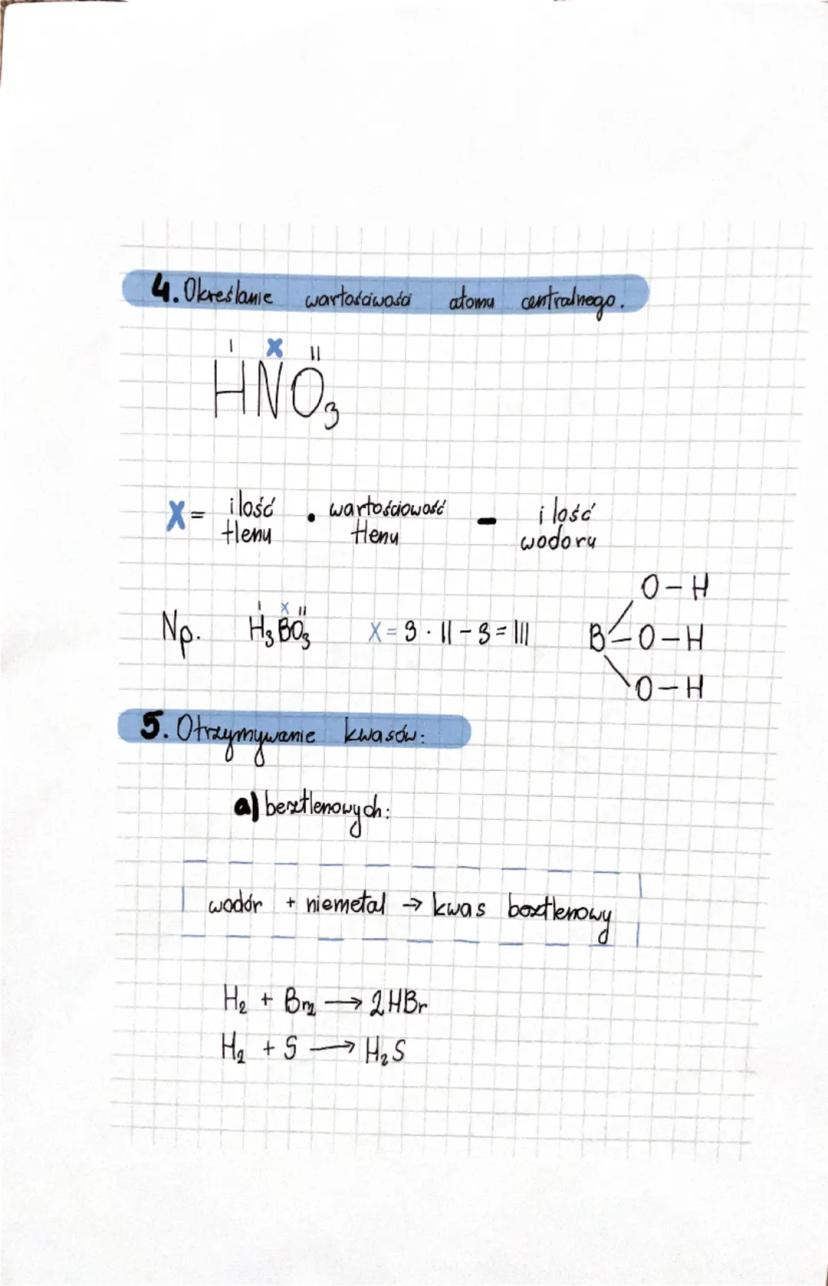 4. Określanie wartościwości atomu centralnego.
I X II
HNO₃
X = ilość tlenu · wartościowość tlenu - ilość wodoru
Np. H₃BO₃ X = 3 · II - 3 = III
I X II
O-H
B-O-H
O-H
5. Otrzymywanie kwasów:
a) beztlenowych:
wodór + niemetal → kwas beztlenowy
H₂ + Br₂ → 2HBr
H₂ + S → H₂S